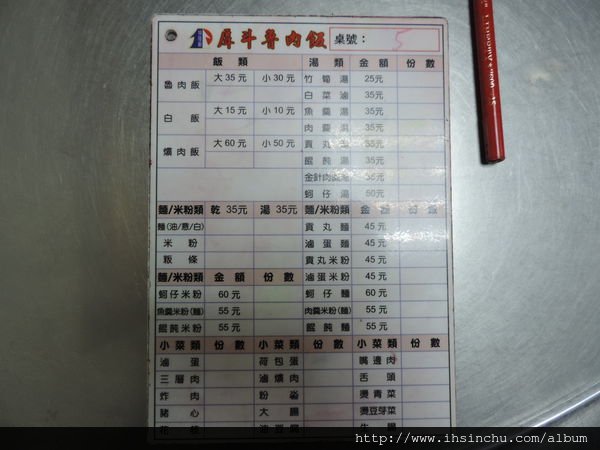 戽斗魯肉飯 桌號： 5
飯類 湯類 金額 份數
魯肉飯 大35元 小30元 竹筍湯 25元
白菜滷 35元
白飯 大15元 小10元 魚羹湯 35元
肉羹湯 35元
爌肉飯 大60元 小50元 貢丸湯 35元
餛飩湯 35元
金針肉羹湯 35元
蚵仔湯 50元
麵/米粉類 乾35元 湯35元 麵/米粉類 金額 份數
麵(油/意/白) 貢丸麵 45元
米粉 滷蛋麵 45元
粄條 貢丸米粉 45元
麵/米粉類 金額 份數 滷蛋米粉 45元
蚵仔米粉 60元 蚵仔麵 60元
魚羹米粉(麵) 55元 肉羹米粉(麵) 55元
餛飩米粉 55元 餛飩麵 55元
小菜類 份數 小菜類 份數 小菜類 份數
滷蛋 荷包蛋 嘴邊肉
三層肉 滷爌肉 舌頭
炸肉 粉 燙青菜
豬心 大腸 燙豆芽菜
http://www.ihsinchu.com/album